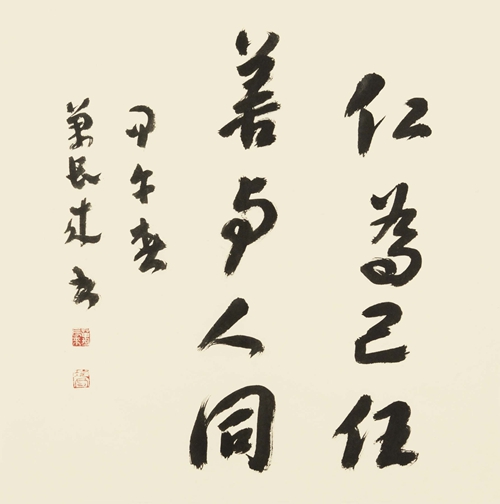 仁為己任
善与人同
甲午春
萬長建书